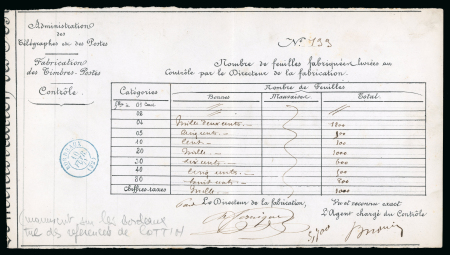 Administration
des
Télégraphes et des Postes
Fabrication
des Timbres-Postes
Contrôle
N° 133
Nombre de feuilles fabriquées livrées au
Contrôle par le Directeur de la fabrication.
Catégories
Nombre de Feuilles
Bonnes
Mauvaises
Total
à 01 Cent
02
04 Mille deux cents 1200
05 cinq cents 500
10 Cent 100
20 Mille 1000
30 six cents 600
40 cinq cents 500
80 huit cents 800
Chiffres-taxes Mille 1000
Le Directeur de la fabrication,
Vu et reconnu exact
L'Agent chargé du Contrôle
BORDEAUX
sur les Bordeaux
des références de COTTIN